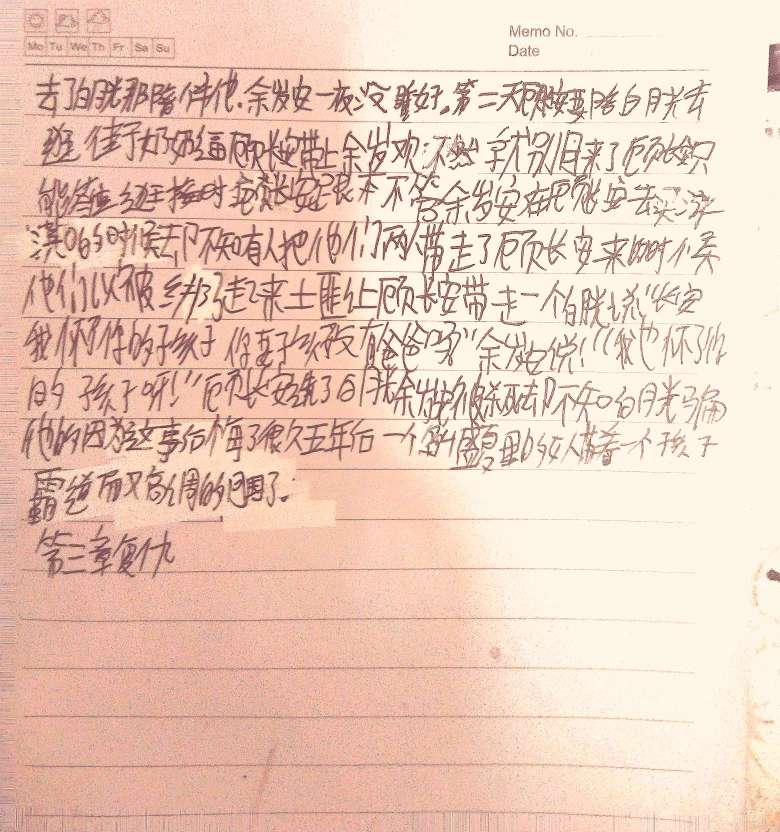 Memo No.
Date
Mo Tu We Th Fr Sa Su
去了白月光那陪伴他.余岁安一夜没睡好。第二天顾长安要陪白月光去
逛街于奶奶逼顾长安带上余岁欢不然就别回来了顾长安只
能答应逛街时顾长安跟本不管余岁安在顾长安去买冰
淇0的时候去卩不知有人把他们两带走了顾长安来的时候
他们以被绑了起来土匪让顾长安带走一个白月光说"长安
我怀了你的孩子 你要孩子没有爸爸吗"余岁安说!"我也怀了你
的孩子呀!"顾长安选了白月光余岁安被杀死去卩不知白月光骗
他的因为这事后悔了很久五年后一个的女人带着一个孩子
霸道而又高调的回国了.
第三章复仇